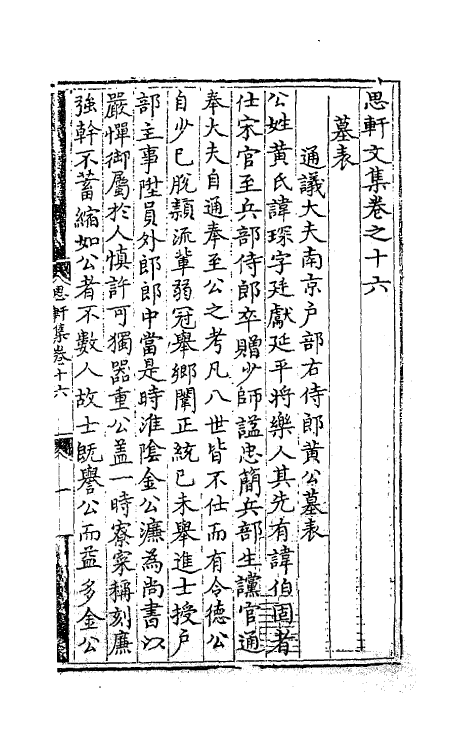 思軒文集卷之十六
墓表
通議大夫南京戶部右侍郎黃公墓表
公姓黃氏諱琛字廷獻延平將樂人其先有諱伯固者
仕宋官至兵部侍郎卒贈少師謚忠簡兵部生讜官通
奉大夫自通奉至公之考凡八世皆不仕而有令德公
自少已脫穎流輩弱冠舉鄉闈正統己未舉進士授戶
部主事陞員外郎郎中當是時淮陰金公濂為尚書以
嚴憚御屬於人慎許可獨器重公盖一時寮寀稱刻廉
強幹不蓄縮如公者不數人故士既譽公而益多金公
思軒集卷十六
一